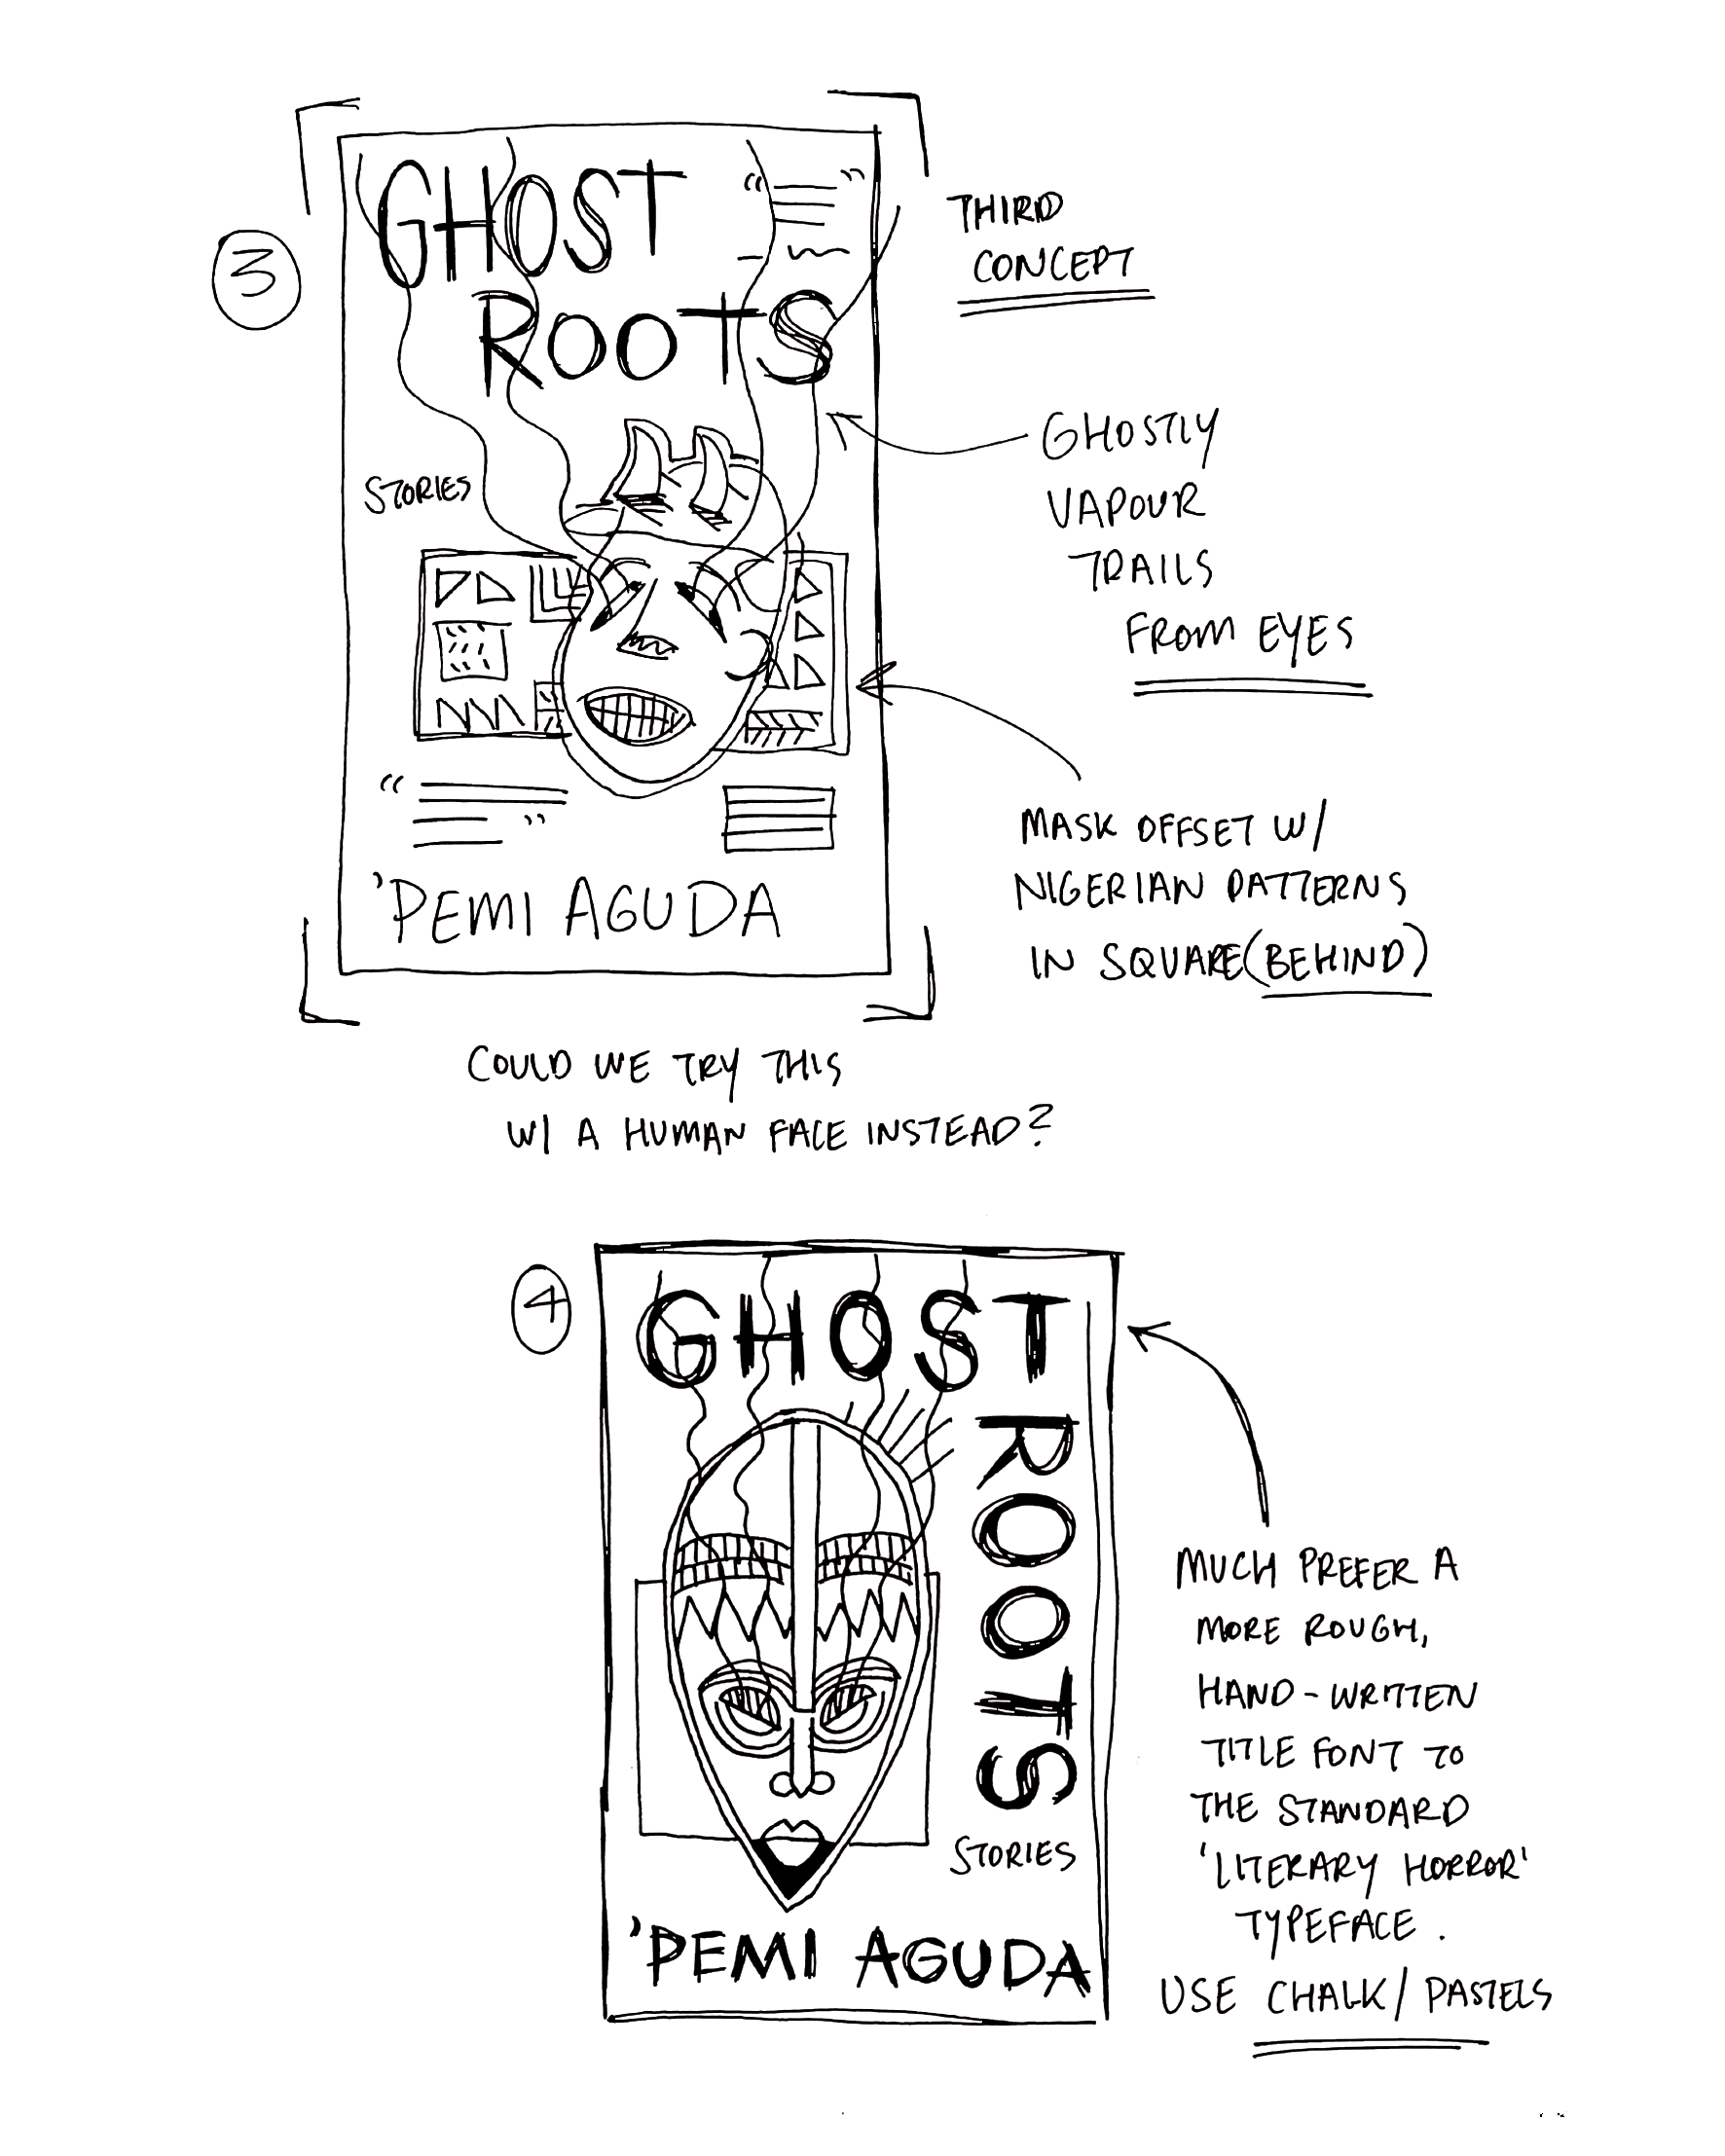 3
GHOST
ROOTS
STORIES
'PEMI AGUDA
THIRD
CONCEPT
GHOSTLY
VAPOUR
TRAILS
FROM EYES
MASK OFFSET W/
NIGERIAN PATTERNS
IN SQUARE (BEHIND)
COULD WE TRY THIS
W/ A HUMAN FACE INSTEAD?
4
GHOST
ROOTS
STORIES
'PEMI AGUDA
MUCH PREFER A
MORE ROUGH,
HAND-WRITTEN
TITLE FONT TO
THE STANDARD
'LITERARY HORROR'
TYPEFACE.
USE CHALK/PASTELS